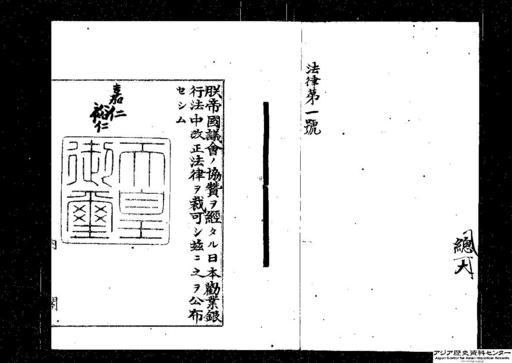 法律第一號
朕帝國議會ノ協贊ヲ經タル日本勸業銀
行法中改正法律ヲ裁可シ玆ニ之ヲ公布
セシム
嘉仁
裕仁
天皇
御璽
內閣
アジア歴史資料センター
Japan Center for Asian Historical Records